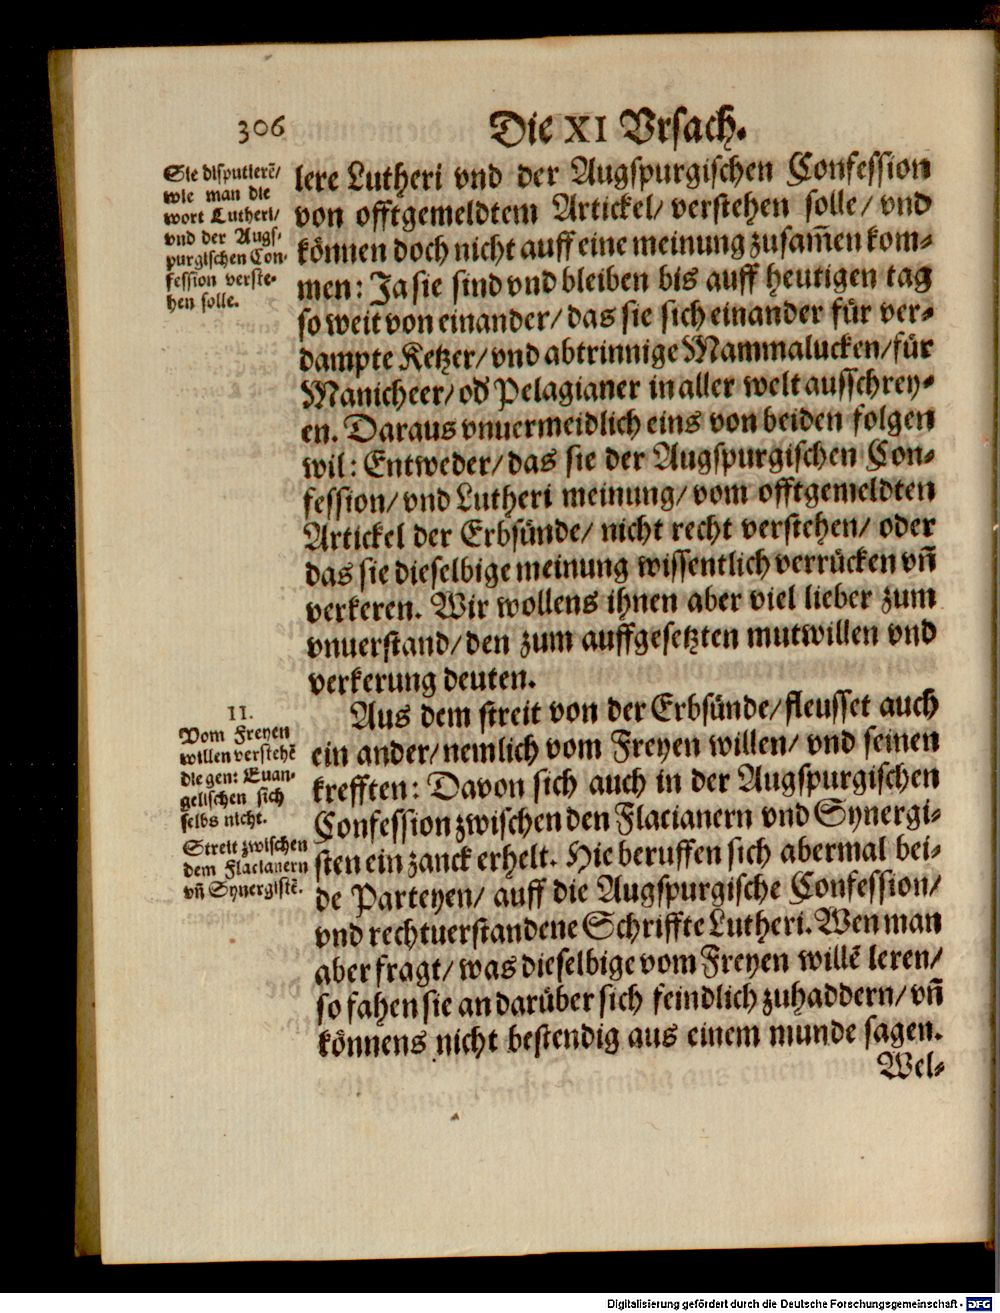 306
Die XI Vrsach.
Sie disputierẽ/
wie man die
wort Lutheri/
vnd der Augs-
purgischen Con-
fession verste-
hen solle.
lere Lutheri vnd der Augspurgischen Confession
von offtgemeldtem Artickel/ verstehen solle/ vnd
können doch nicht auff eine meinung zusam̃en kom-
men: Ja sie sind vnd bleiben bis auff heutigen tag
so weit von einander/ das sie sich einander für ver-
dampte Ketzer/ vnd abtrinnige Mammalucken/ für
Manicheer/ od̛ Pelagianer in aller welt ausschrey-
en. Daraus vnuermeidlich eins von beiden folgen
wil: Entweder/ das sie der Augspurgischen Con-
fession/ vnd Lutheri meinung/ vom offtgemeldten
Artickel der Erbsünde/ nicht recht verstehen/ oder
das sie dieselbige meinung wissentlich verrücken vñ
verkeren. Wir wollens ihnen aber viel lieber zum
vnuerstand/ den zum auffgesetzten mutwillen vnd
verkerung deuten.
11.
Vom Freyen
willen verstehẽ
die gen: Euan-
gelischen sich
selbs nicht.
Streit zwischen
dem Flacianern
vñ Synergistẽ.
Aus dem streit von der Erbsünde/ fleusset auch
ein ander/ nemlich vom Freyen willen/ vnd seinen
krefften: Davon sich auch in der Augspurgischen
Confession zwischen den Flacianern vnd Synergi-
sten ein zanck erhelt. Hie beruffen sich abermal bei-
de Parteyen/ auff die Augspurgische Confession/
vnd rechtuerstandene Schriffte Lutheri. Wen man
aber fragt/ was dieselbige vom Freyen willẽ leren/
so fahen sie an darüber sich feindlich zuhaddern/ vñ
könnens nicht bestendig aus einem munde sagen.
Wel-
Digitalisierung gefördert durch die Deutsche Forschungsgemeinschaft - DFG